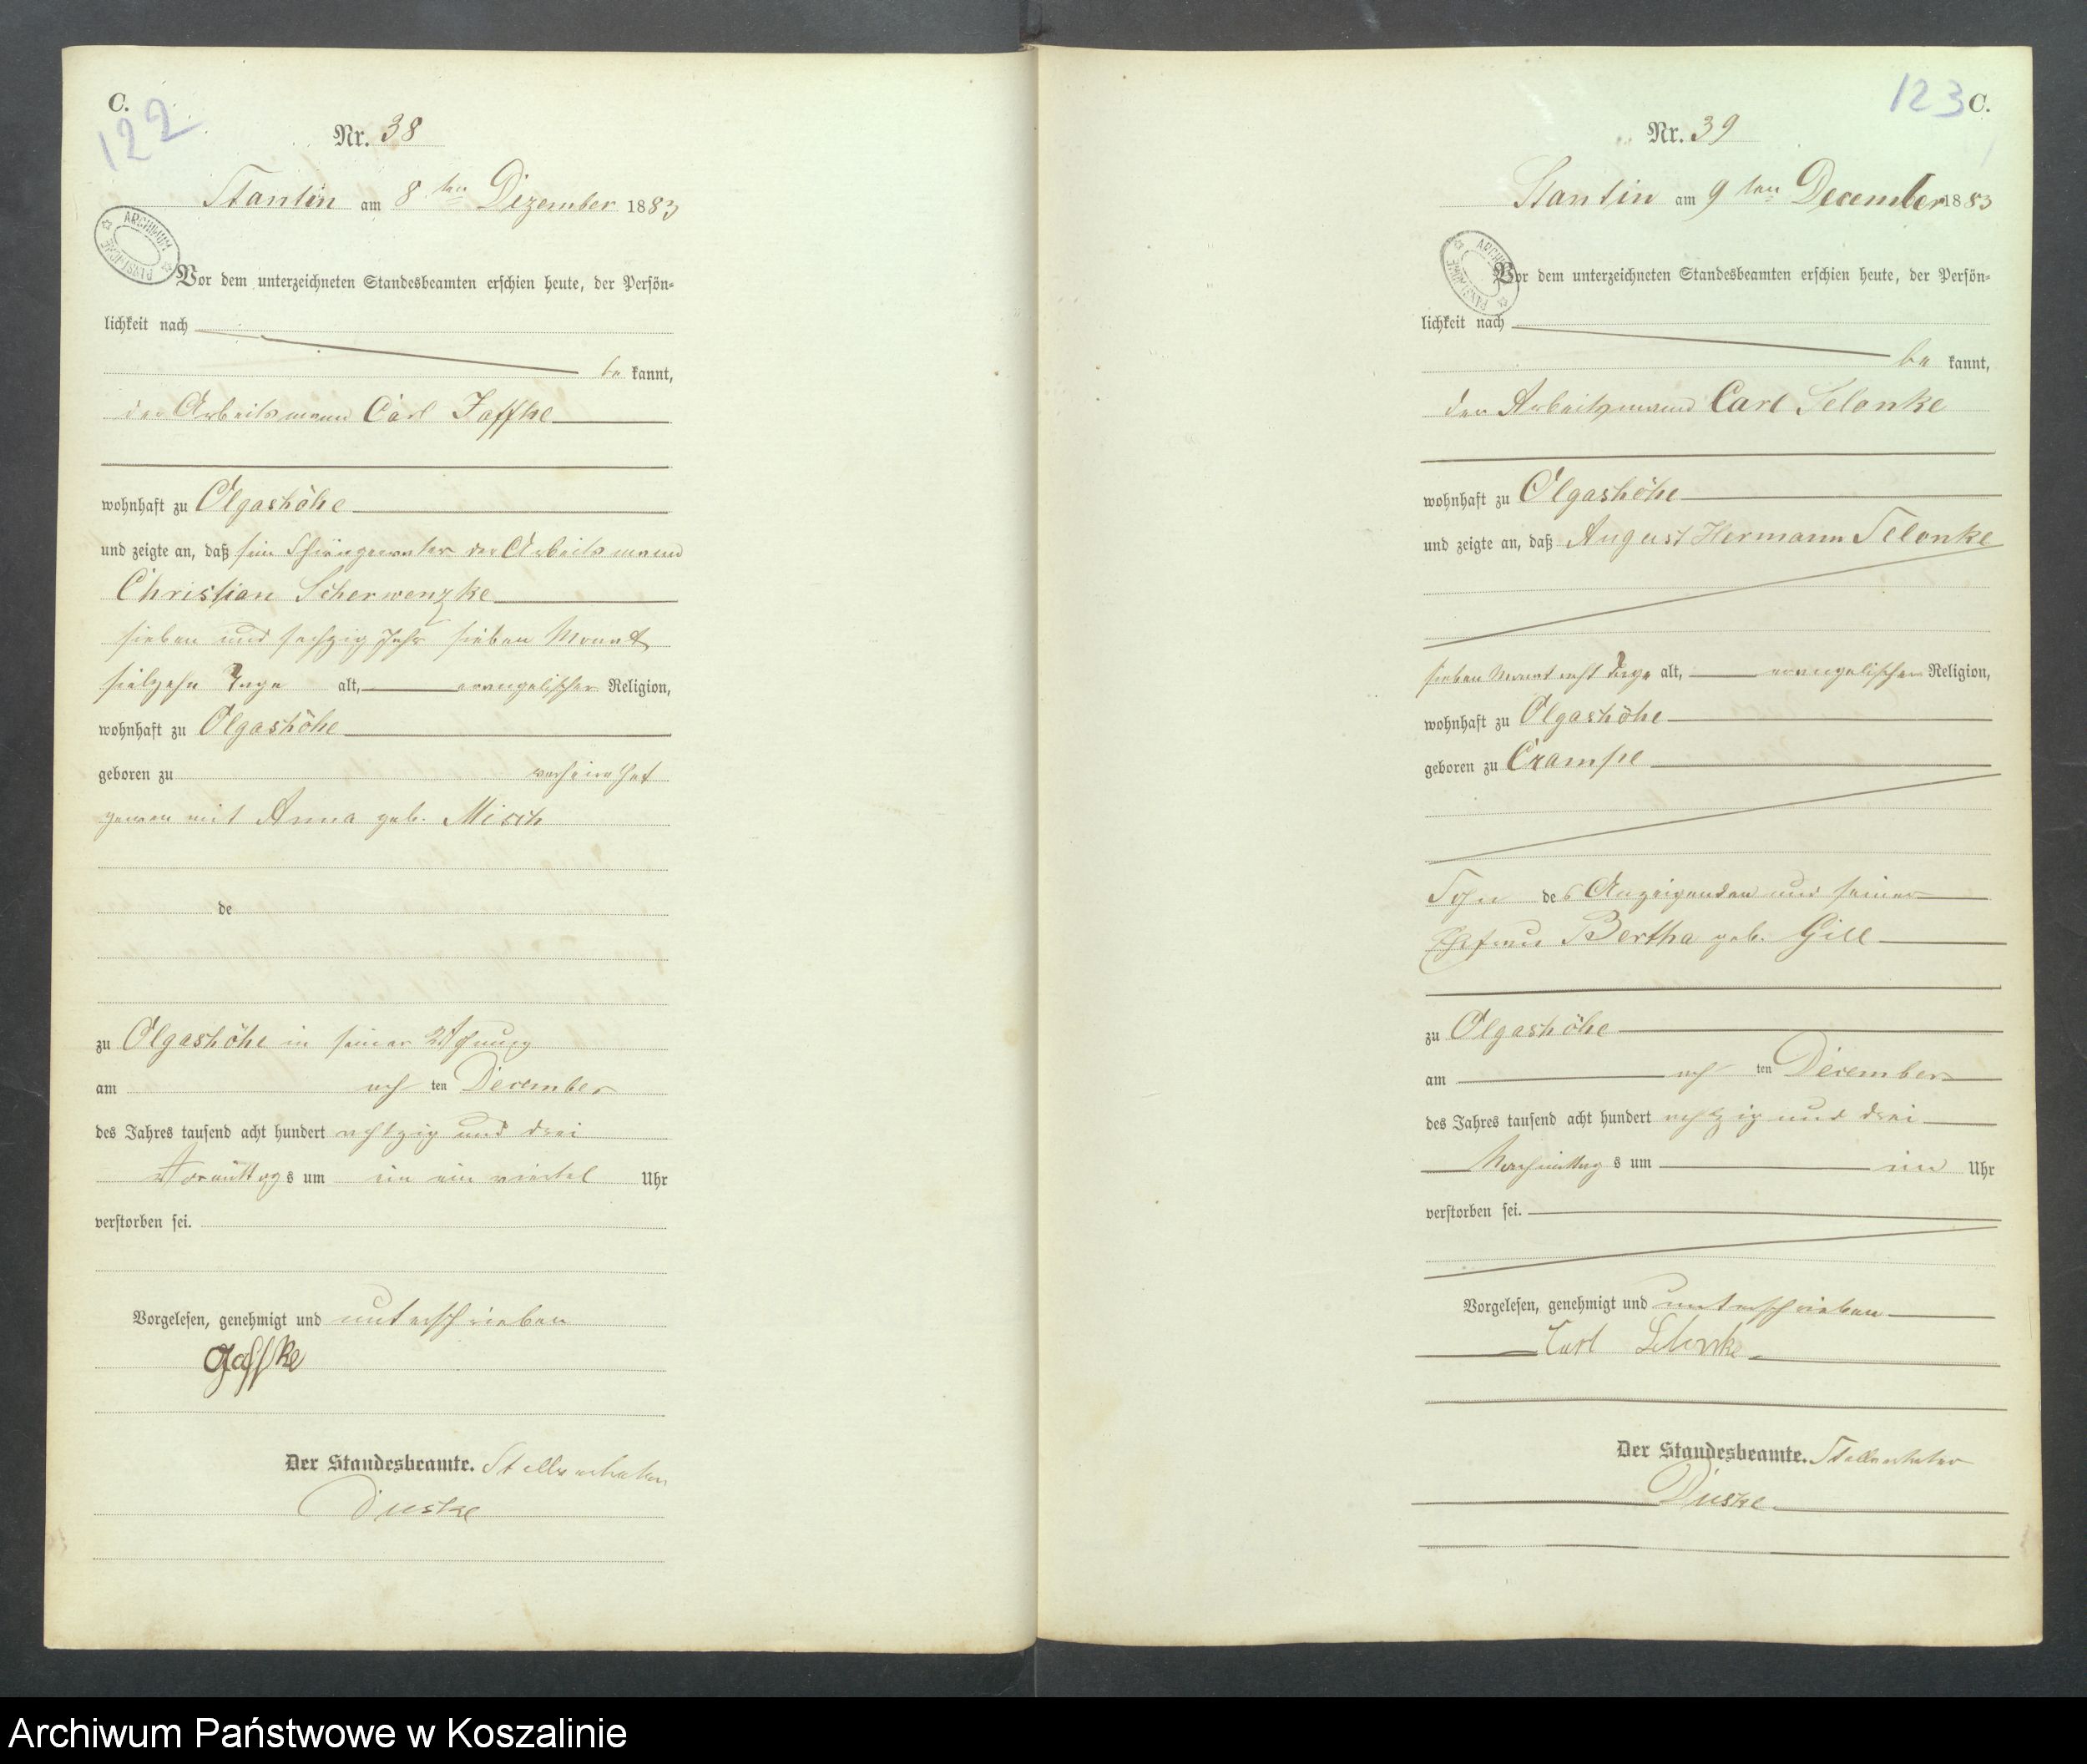 C.
122
Nr. 38
Stantin am 8 ten Dezember 1883
ARCHIWUM PAŃSTWOWE
Vor dem unterzeichneten Standesbeamten erschien heute, der Persön=
lichkeit nach
be kannt,
der Arbeitsmann Carl Jaffke
wohnhaft zu Olgashöhe
und zeigte an, daß sein Schwiegervater der Arbeitsmann
Christian Scherwenzke
sieben und sechzig Jahr sieben Monat
siebzehn Tage alt, evangelischer Religion,
wohnhaft zu Olgashöhe
geboren zu verheirathet
gewesen mit Anna geb. Misch
de
zu Olgashöhe in seiner Wohnung
am acht ten December
des Jahres tausend acht hundert achtzig und drei
Vormittags um ein ein viertel Uhr
verstorben sei.
Vorgelesen, genehmigt und unterschrieben
Jaffke
Der Standesbeamte. Stellvertreter
Duske
123 C.
Nr. 39
Stantin am 9 ten December 1883
ARCHIWUM PAŃSTWOWE
Vor dem unterzeichneten Standesbeamten erschien heute, der Persön=
lichkeit nach
be kannt,
der Arbeitsmann Carl Selonke
wohnhaft zu Olgashöhe
und zeigte an, daß August Hermann Selonke
sieben Monat acht Tage alt, evangelischer Religion,
wohnhaft zu Olgashöhe
geboren zu Crampe
Sohn des Anzeigenden und seiner
Ehefrau Bertha geb. Gill
zu Olgashöhe
am acht ten December
des Jahres tausend acht hundert achtzig und drei
Nachmittags um ein Uhr
verstorben sei.
Vorgelesen, genehmigt und unterschrieben
Carl Selonke
Der Standesbeamte. Stellvertreter
Duske
Archiwum Państwowe w Koszalinie